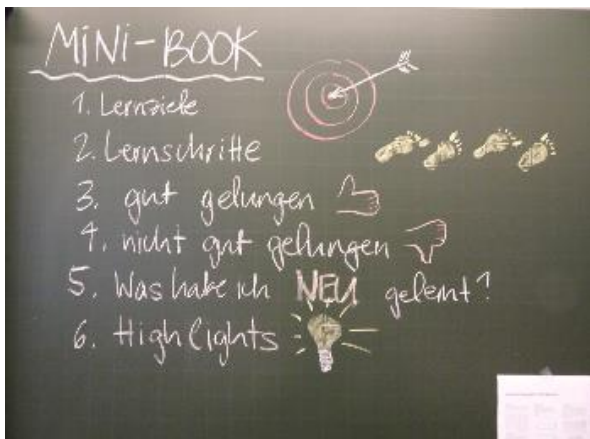 MINI-BOOK
1. Lernziele
2. Lernschritte
3. gut gelungen
4. nicht gut gelungen
5. Was habe ich NEU gelernt?
6. Highlights